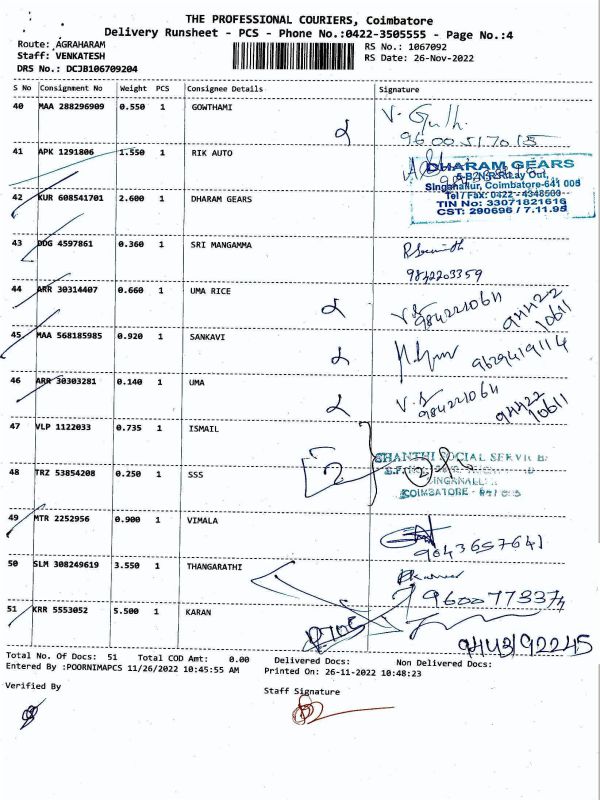 THE PROFESSIONAL COURIERS, Coimbatore
Delivery Runsheet - PCS - Phone No.:0422-3505555 - Page No.:4
Route: AGRAHARAM
RS No.: 1067092
Staff: VENKATESH
RS Date: 26-Nov-2022
DRS No.: DCJB106709204
S No Consignment No Weight PCS Consignee Details Signature
40 MAA 288296909 0.550 1 GOWTHAMI
9600517015
41 APK 1291806 1.550 1 RIK AUTO
DHARAM GEARS
Singanallur, Coimbatore-641 005
42 KUR 608541701 2.600 1 DHARAM GEARS
Tel / Fax: 0422 - 4348500
TIN No: 33071821616
CST: 290696 / 7.11.95
43 DDG 4597861 0.360 1 SRI MANGAMMA
9842203359
44 ARR 30314407 0.660 1 UMA RICE
9842210611 94422 10611
45 MAA 568185985 0.920 1 SANKAVI
9629419114
46 ARR 30303281 0.140 1 UMA
9842210611 94422 10611
47 VLP 1122033 0.735 1 ISMAIL
2
SHANTHI SOCIAL SERVICE
48 TRZ 53854208 0.250 1 SSS
SINGANALLUR
COIMBATORE - 641 005
49 MTR 2252956 0.900 1 VIMALA
9843657641
50 SLM 308249619 3.550 1 THANGARATHI
9600773374
51 KRR 5553052 5.500 1 KARAN
9443192245
Total No. Of Docs: 51 Total COD Amt: 0.00 Delivered Docs: Non Delivered Docs:
Entered By :POORNIMAPCS 11/26/2022 10:45:55 AM Printed On: 26-11-2022 10:48:23
Verified By
Staff Signature